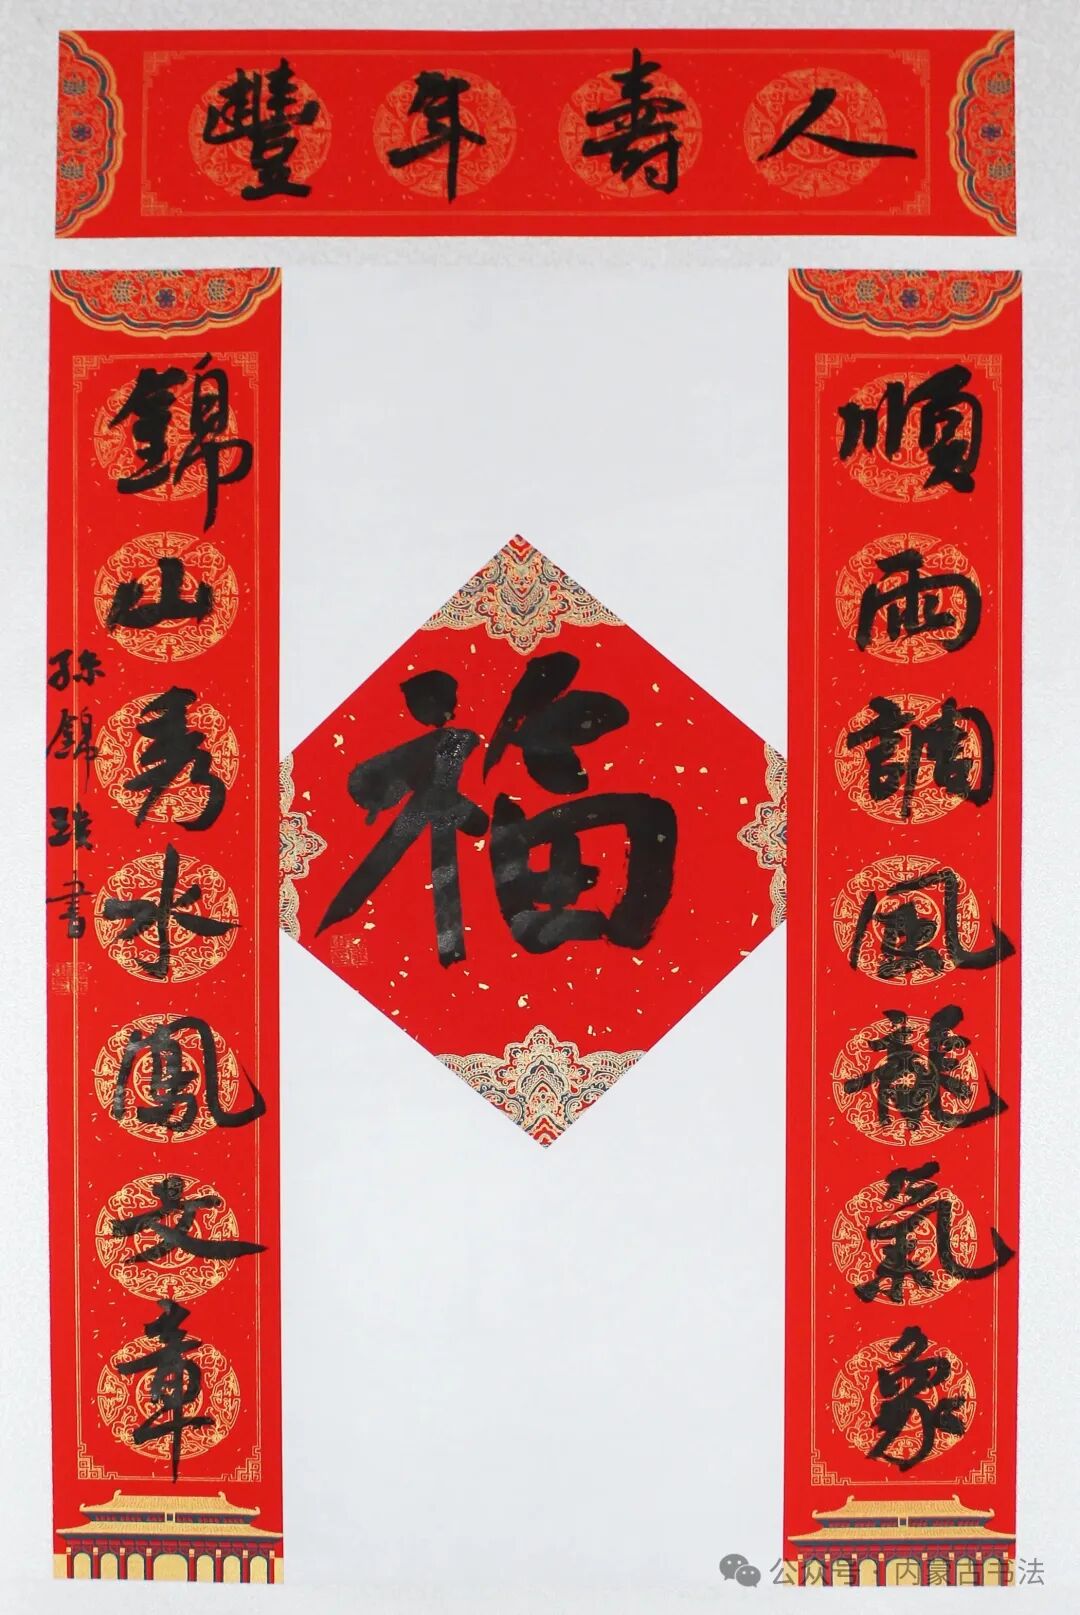 人壽年豐
順雨調風龍氣象
錦山秀水鳳文章
孫錦書
福
公众号·内蒙古书法